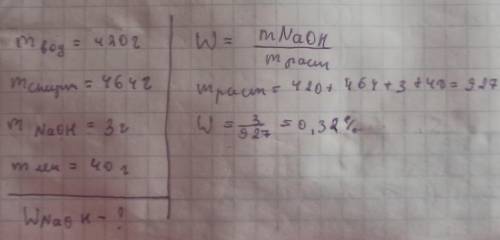 m вод = 420г
m спирт = 464г
m NaOH = 3г
m лим = 40г
WNaOH - ?
W = mNaOH / mраст
mраст = 420 + 464 + 3 + 40 = 927
W = 3/927 = 0,32%